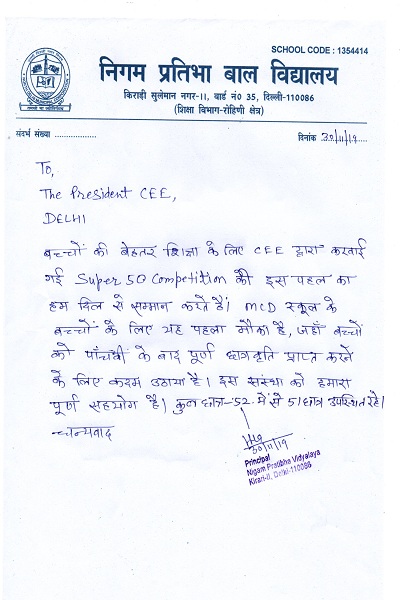 SCHOOL CODE : 1354414
निगम प्रतिभा बाल विद्यालय
किराड़ी सुलेमान नगर-II, वार्ड नं0 35, दिल्ली-110086
(शिक्षा विभाग-रोहिणी क्षेत्र)
संदर्भ संख्या ..................
दिनांक 30/11/19
To,
The President CEE,
DELHI
बच्चों की बेहतर शिक्षा के लिए CEE द्वारा करवाई
गई Super 50 Competition की इस पहल का
हम दिल से सम्मान करते हैं। MCD स्कूल के
बच्चों के लिए यह पहला मौका है, जहाँ बच्चों
को पाँचवी के बाद पूर्ण छात्रवृति प्राप्त करने
के लिए कदम उठाया है। इस संस्था को हमारा
पूर्ण सहयोग है। कुल छात्र-52 में से 51 छात्र उपस्थित रहे।
धन्यवाद
30/11/19
Principal
Nigam Pratibha Vidyalaya
Kirari-II, Delhi-110086